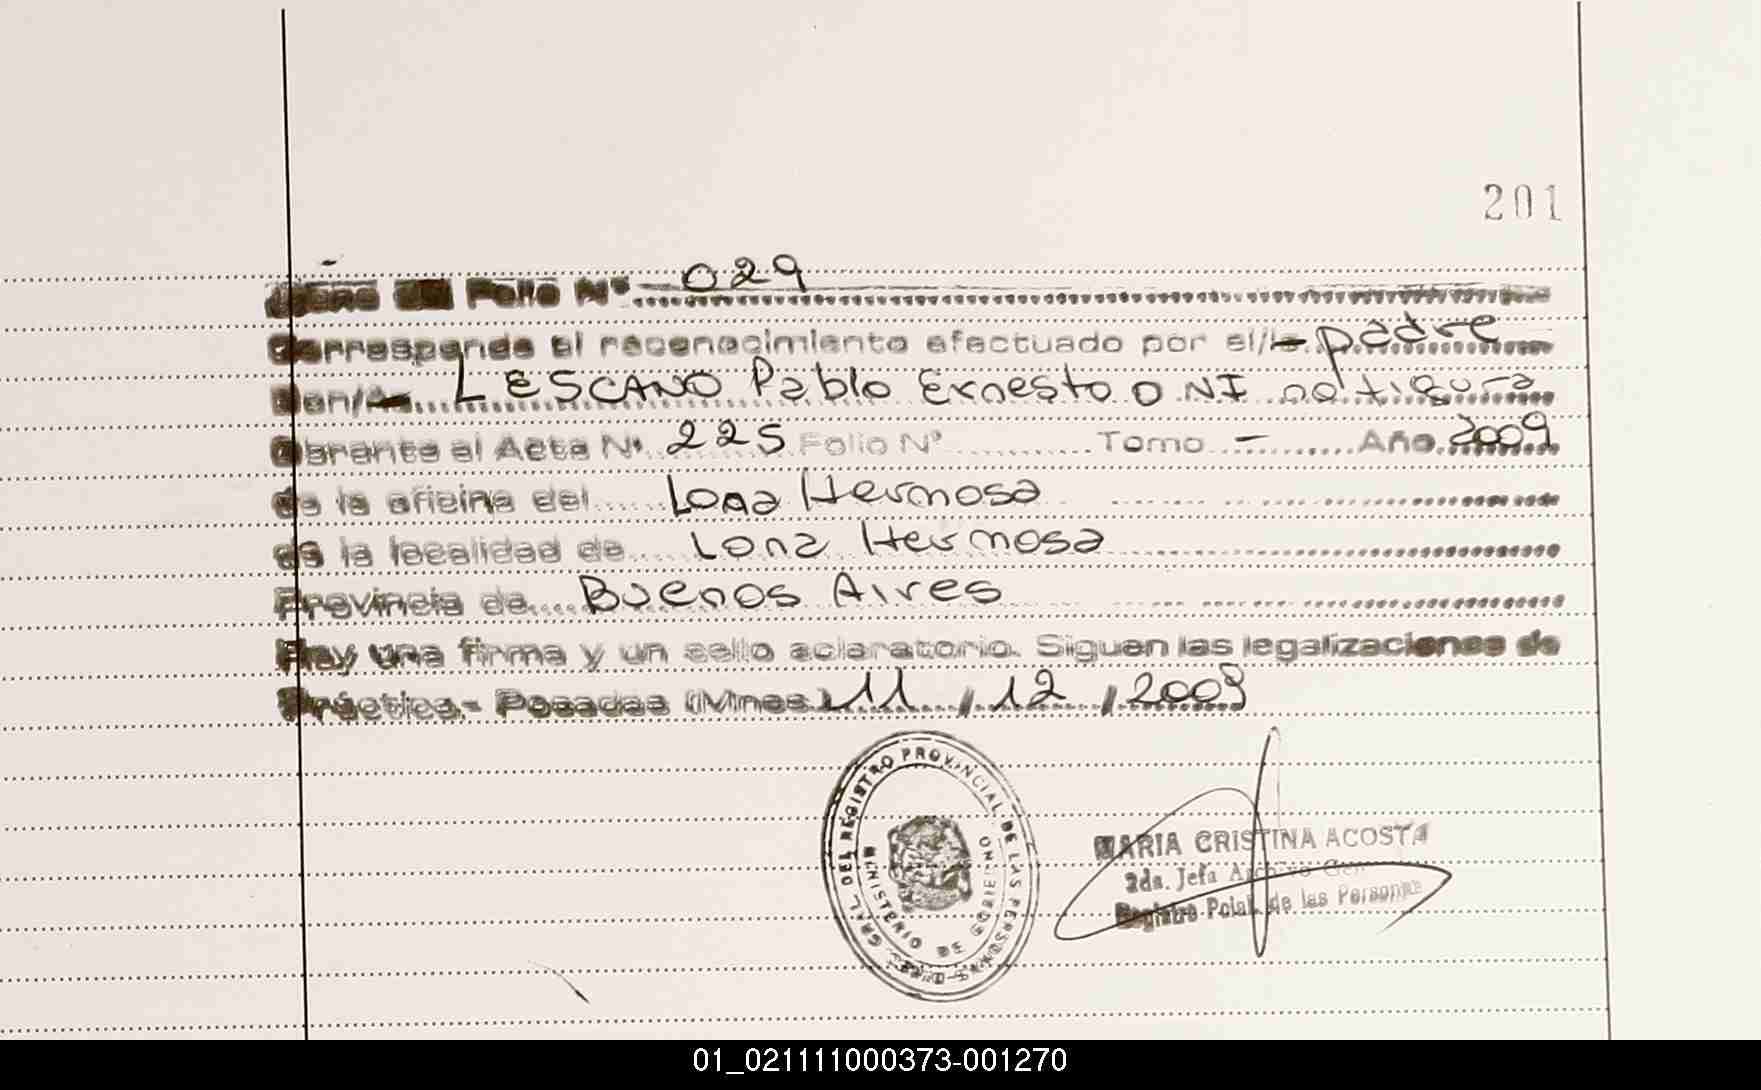 201
Viene del Folio Nº 029
Corresponde al reconocimiento efectuado por el/la padre
don/ña LESCANO Pablo Ernesto DNI no figura
Obrante al Acta Nº 225 Folio Nº Tomo - Año 2009
de la oficina del Loma Hermosa
de la localidad de Loma Hermosa
Provincia de Buenos Aires
Hay una firma y un sello aclaratorio. Siguen las legalizaciones de
Práctica.- Posadas (Mnes) 11 / 12 / 2009
GRAL. DEL REGISTRO PROVINCIAL DE LAS PERSONAS
MINISTERIO DE GOBIERNO
MARIA CRISTINA ACOSTA
2da. Jefa Archivo Gen
Registro Pcial. de las Personas
01_021111000373-001270